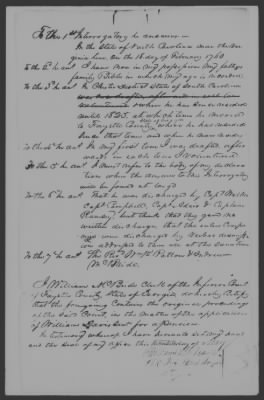 To the 1st Interrogatory he answers—
In the State of North Carolina near the
line, on the 16 day of February 1760
to the 2d he ans I have now in my possession my fathers
family Bible in which my age is recorded
to the 3d he ans In Chester district State of South Carolina
where he has since resided
until 1825. at which time he moved
to Fayette County where he has resided
since that time and where he now resides
to the 4th he ans In my first tour I was drafted, after
wards in each tour I Volunteered
To the 5th he ans I must refer to the body of my declara
tion where the answer to this Interrogatory
will be found at length
To the 6th he ans That he was discharged by Capt
Capt Campbell, Capt Adair & Captain
Ramsey but thinks that they gave no
written discharge, that the entire Comp
any was discharged by verbal
to them at the
to the 7th he ans The Revd Wm Patton & Andrew
McBride.
I William McBride Clerk of the Inferior Court
of Fayette County State of Georgia do hereby Certify
that the foregoing Contains the original proceedings
of the said Court, in the matter of the application
of William Davis Sent for a pension
In testimony whereof I have hereunto set my hand
and the seal of my office this